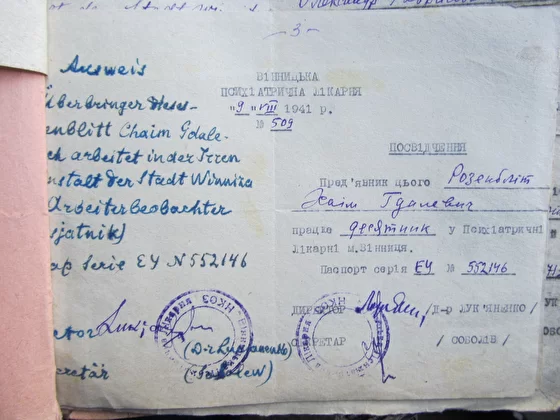 Олександр
- 3 -
Ausweis
Überbringer dieses
enblitt Chaim Gdale-
ch arbeitet in der Irren
nstalt der Stadt Winniza
Arbeiterbeobachter
sjatnik)
ap Serie ЕЧ N 552146
(D-r Lukianenko)
(Sobolew)
kretär
ВІННИЦЬКА
ПСИХІАТРИЧНА ЛІКАРНЯ
"9" VIII 1941 р.
№ 509
ПОСВІДЧЕННЯ
Пред'явник цього Розенбліт
Хаім Гдалевич
працює десятник у Психіатричні
Лікарні м.Вінниця.
Паспорт серія ЕЧ № 552146
ДИРЕКТОР /Д-р ЛУК'ЯНЕНКО /
СЕКРЕТАР / СОБОЛІВ /